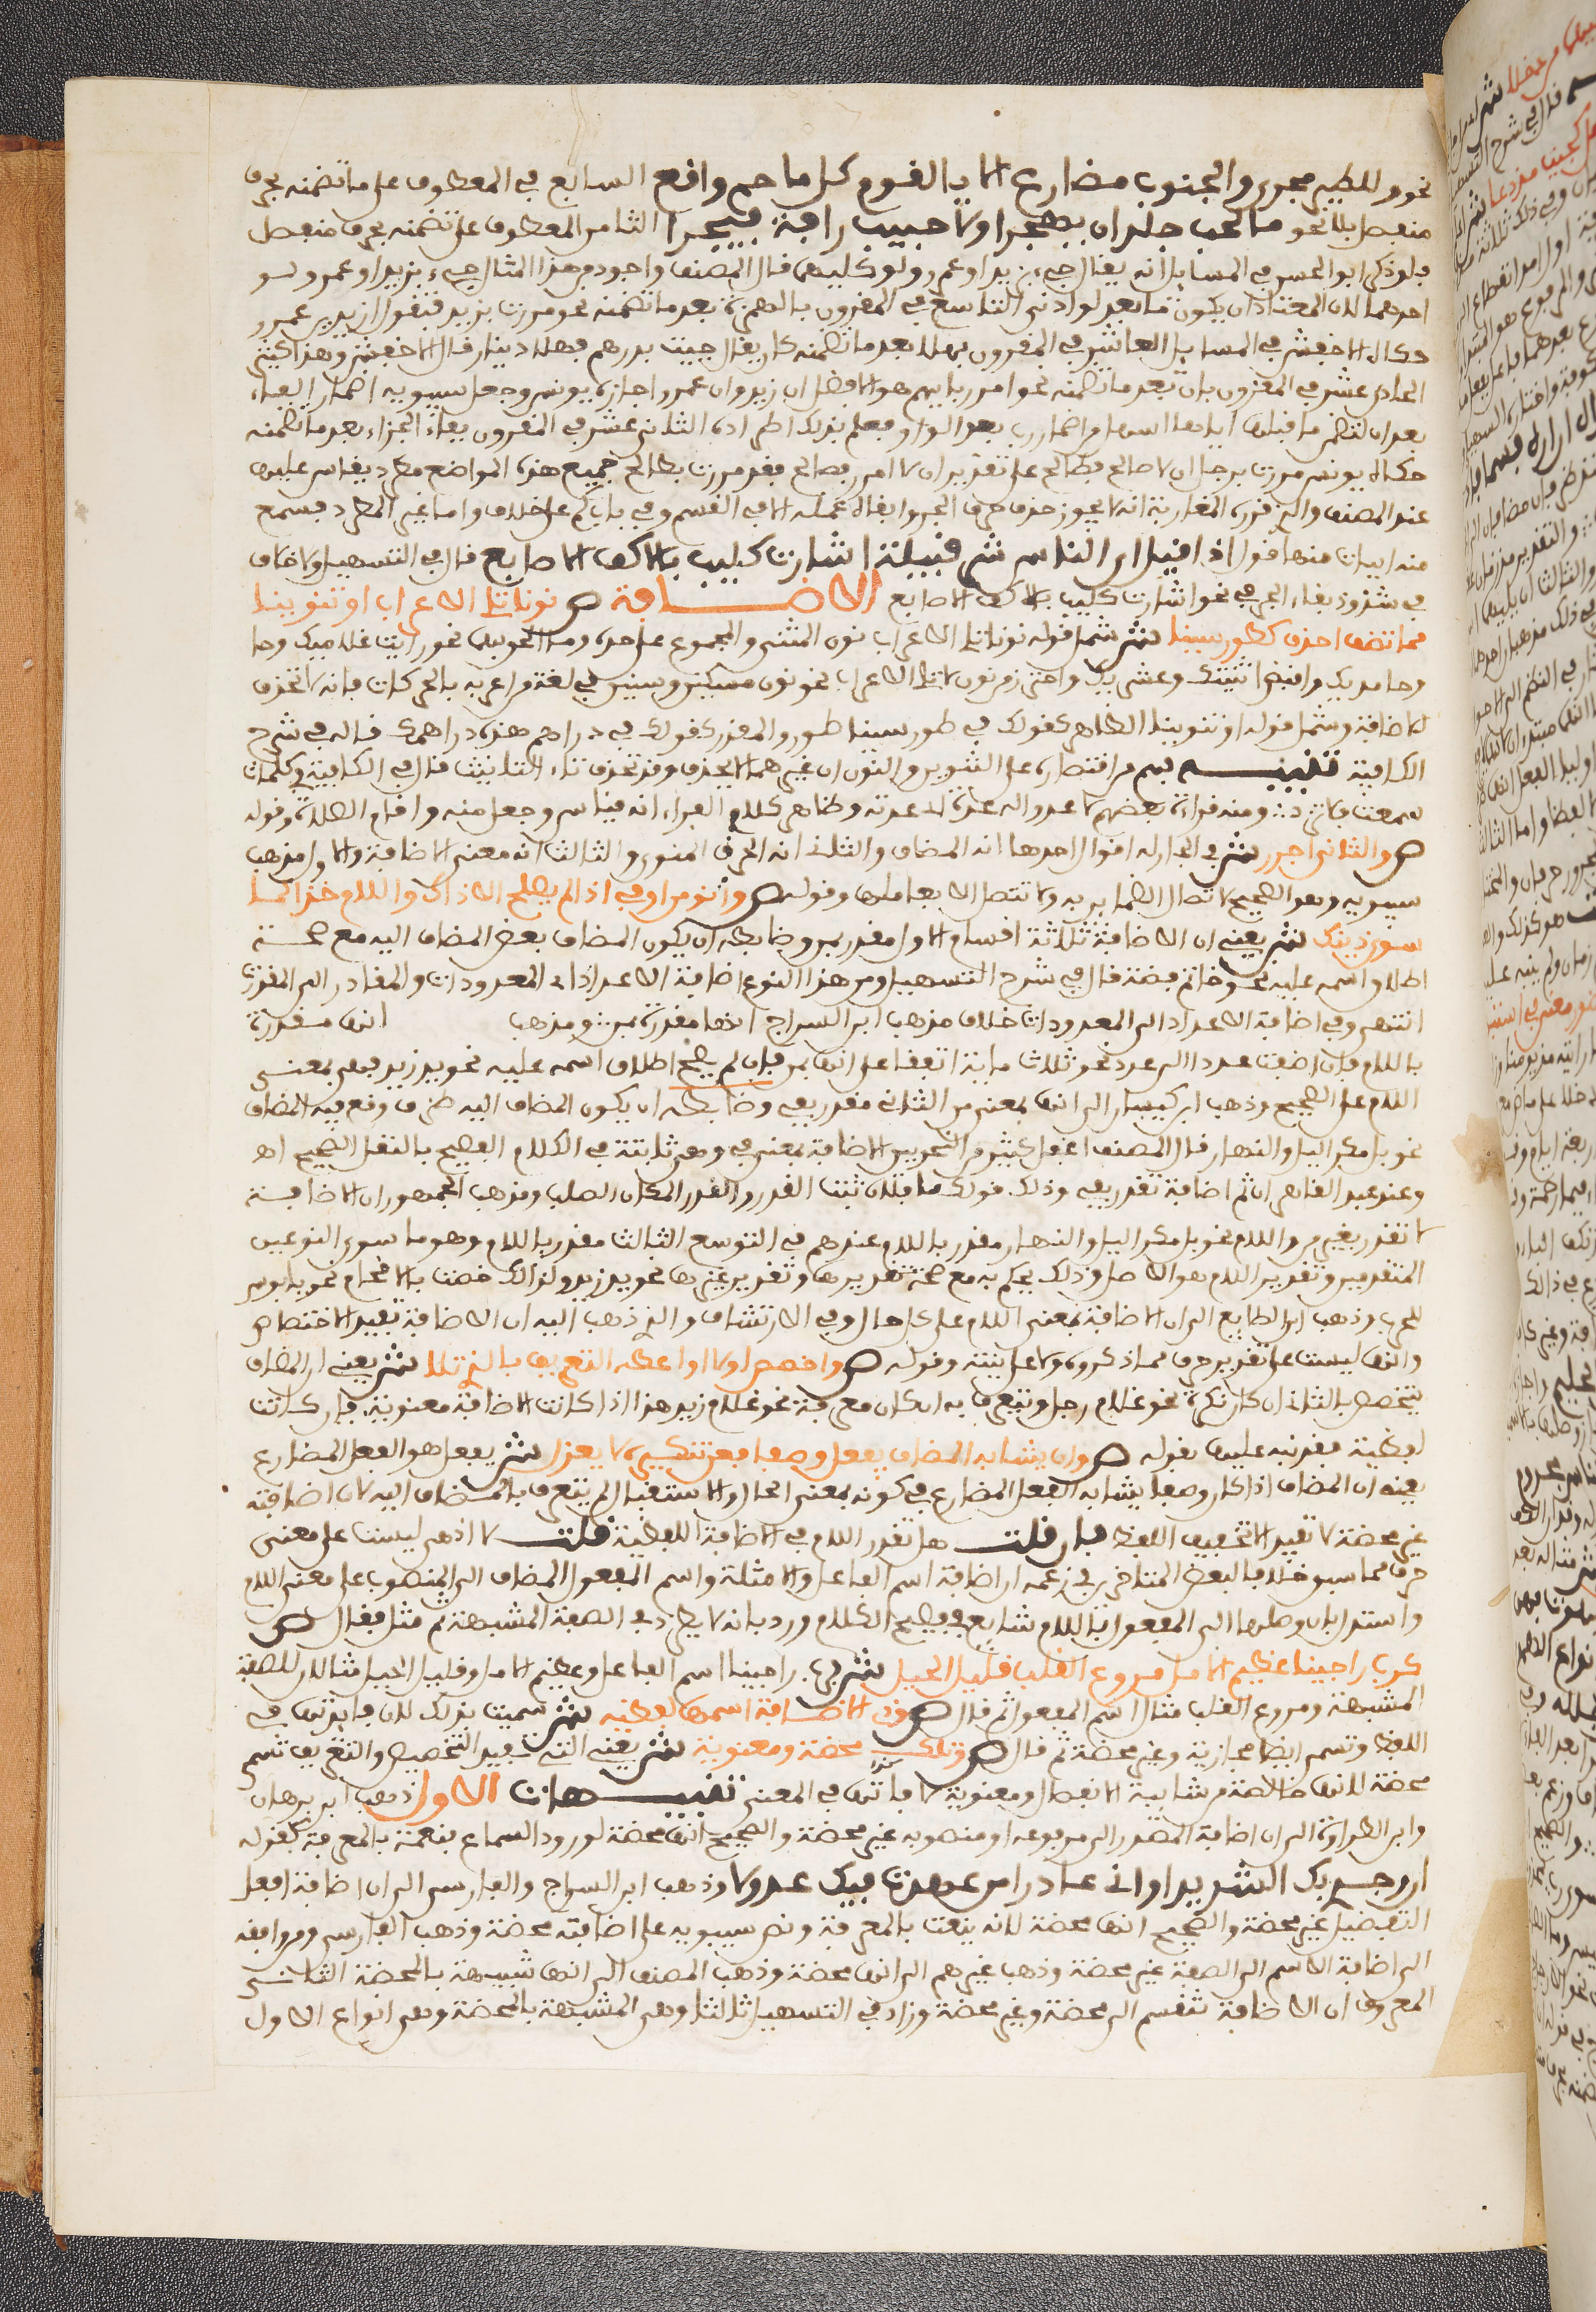 نحو وللطير مجرى والجنوب مضارع الا يا لقوم كل ما حم واقع السابع في المعطوف على ما تضمنه بحرف
منفصل بلا نحو ما لمحب جلد ان يهجرا ولا حبيب رافة فيجبرا الثامن المعطوف على تضمنه بحرف منفصل
بلو ذكر ابو الحسن في المسايل انه يقال جيء بزيد او عمرو ولو كليهما قال المصنف واجود من هذا المثال جيء بزيد او عمرو ولو
احدهما لان المعتاد ان يكون ما بعد لو ادنى التاسع في المقرون بالهمزة بعد ما تضمنه نحو مررت بزيد فتقول ازيد بن عمرو
حكاه الاخفش في المسايل العاشر في المقرون بهلا بعد ما تضمنه كان يقال جيت بدرهم فهلا دينار قال الاخفش وهذا كثير
الحادي عشر في المقرون بان بعد ما تضمنه نحو امرر بايهم هو افضل ان زيد وان عمرو اجازه يونس وجعل سيبويه اضمار الباء
بعد ان لتضمن ما قبلها اياها اسهل من اضمار رب بعد الواو فعلم بذلك اطراده الثاني عشر في المقرون بفاء الجزاء بعد ما تضمنه
حكى يونس مررت برجل ان لا صالح فطالح على تقدير ان لا امرر بصالح فقد مررت بطالح جميع هذه المواضع مطرد يقاس عليها
عند المصنف والذي قرره المغاربة انه لا يجوز حذف حرف الجر وابقاء عمله الا في القسم وفي باب كم على خلاف واما غير المطرد فسمع
منه ابيات منها قول اذا قيل اي الناس شر قبيلة اشارت كليب بالاكف الاصابع قال في التسهيل ولا خلاف
في شذوذ بقاء الجر في نحو اشارت كليب بالاكف الاصابع الاضافة ص نونا تلي الاعراب او تنوينا
مما تضف احذف كطور سينا ش شمل قوله نونا تلي الاعراب نون المثنى والمجموع على حده وما الحق بهما نحو رايت غلاميك
وحامديك واقبض اثنيك وعشريك واحترز من نون لا تلي الاعراب نحو نون مسكين وسنين في لغة من اعربه بالحركات فانه لا تحذف
للاضافة وشمل قوله او تنوينا الظاهر كقولك في طور سينا طور والمقدر كقولك في دراهم هذه دراهمك قاله في شرح
الكافية تنبيه فهم من اقتصاره على التنوين والنون ان غيرهما لا يحذف وقد تحذف تاء التانيث قال في الكافية
ص والثاني اجرر ش في الجار له اقوال احدها انه المضاف والثاني انه الحرف المنوي والثالث انه معنى الاضافة والاول مذهب
سيبويه وهو الصحيح لاتصال الضماير به ولا تتصل الا بعاملها وقوله ص وانو من او في اذا لم يصلح الا ذاك واللام خذا لما
سوى ذينك ش يعني ان الاضافة ثلاثة اقسام الاول مقدر بمن وضابطه ان يكون المضاف بعض المضاف اليه مع صحة
اطلاق اسمه عليه نحو خاتم فضة قال في شرح التسهيل ومن هذا النوع اضافة الاعداد الى المعدودات والمقادير الى المقدرات
انتهى وفي اضافة الاعداد الى المعدودات خلاف مذهب ابن السراج انها مقدرة بمن ومذهب انها مقدرة
باللام فان اضفت عددا الى عدد نحو ثلاث ماية اتفقا على انها بمن فان لم يصح اطلاق اسمه عليه نحو يد زيد فهي بمعنى
اللام على الصحيح وذهب ابن كيسان الى انها بمعنى من الثاني مقدر بفي وضابطه ان يكون المضاف اليه ظرفا وقع فيه المضاف
نحو بل مكر الليل والنهار قال المصنف اغفل كثير من النحويين الاضافة بمعنى في وهي ثابتة في الكلام الفصيح بالنقل الصحيح اه
لا تقدر بغير من واللام نحو بل مكر الليل والنهار مقدر باللام عندهم في التوسع الثالث مقدر باللام وهو ما سوى النوعين
المتقدمين وتقدير اللام هو الاصل ولذلك يحكم به مع صحة تقديرها وتقدير غيرها نحو يد زيد ولذلك خصت بالاقحام نحو يا بوس
للحرب وذهب ابن الصايغ الى ان الاضافة بمعنى اللام على كل حال وفي الارتشاف والذي ذهب اليه ان الاضافة تفيد الاختصاص
وانها ليست على تقدير حرف مما ذكروه ولا على نيته وقوله ص واخصص اولا او اعطه التعريف بالذي تلا ش يعني ان المضاف
يتخصص بالثاني ان كان نكرة نحو غلام رجل ويتعرف به ان كان معرفة نحو غلام زيد هذا اذا كانت الاضافة معنوية فان كانت
لفظية فقد نبه عليها بقوله ص وان يشابه المضاف يفعل وصفا فعن تنكيره لا يعزل ش يفعل هو الفعل المضارع
يعني ان المضاف اذا كان وصفا يشابه الفعل المضارع في كونه بمعنى الحال والاستقبال لم يتعرف بالمضاف اليه لان اضافته
غير محضة لا تفيد الا تخفيف اللفظ فان قلت هل تقدر اللام في الاضافة اللفظية قلت لا اذ هي ليست على معنى
حرف مما سبق خلافا لبعض المتاخرين في زعمه ان اضافة اسم الفاعل والامثلة واسم المفعول المضاف الى المنصوب على معنى اللام
واستدل بان وصلها الى المفعول باللام شايع في فصيح الكلام ورد بانه لا يطرد في الصفة المشبهة ثم مثل فقال ص
كرب راجينا عظيم الامل مروع القلب قليل الحيل ش فراجينا اسم الفاعل وعظيم الامل وقليل الحيل مثالان للصفة
المشبهة ومروع القلب مثال اسم المفعول ثم قال ص وذي الاضافة اسمها لفظية ش سميت بذلك لان فايدتها في
اللفظ وتسمى ايضا مجازية وغير محضة ثم قال ص وتلك محضة ومعنوية ش يعني التي تفيد التخصيص والتعريف تسمى
محضة لانها خالصة من شايبة الانفصال ومعنوية لان فايدتها في المعنى تنبيهات الاول ذهب ابن برهان
وابن الطراوة الى ان اضافة المصدر الى مرفوعه او منصوبه غير محضة والصحيح انها محضة لورود السماع بنعته بالمعرفة كقوله
ان وجدي بك الشديد اراني عاذرا من عهدت فيك عذولا وذهب ابن السراج والفارسي الى ان اضافة افعل
التفضيل غير محضة والصحيح انها محضة لانه ينعت بالمعرفة ونص سيبويه على اضافته محضة وذهب الفارسي ومن وافقه
الى اضافة الاسم الى الصفة غير محضة وذهب غيرهم الى انها محضة وذهب المصنف الى انها شبيهة بالمحضة الثاني
المعروف ان الاضافة تنقسم الى محضة وغير محضة وزاد في التسهيل ثالثا وهي المشبهة بالمحضة وهي انواع الاول